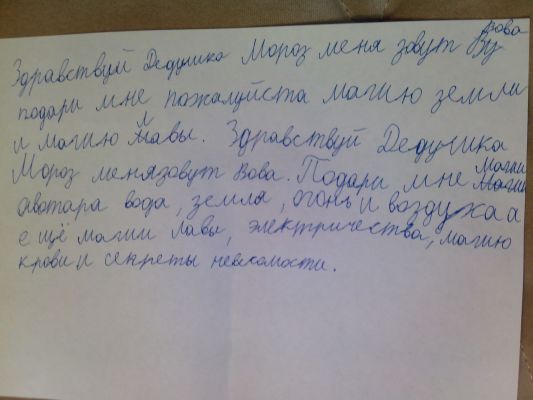 Здравствуй Дедушка Мороз меня зовут Вова
подари мне пожалуйста магию земли
и магию лавы. Здравствуй Дедушка
Мороз менязовут Вова. Подари мне магии
аватара вода, земля, огонь и воздуха а
ещё магии лавы, электричества, магию
крови и секреты невесомости.